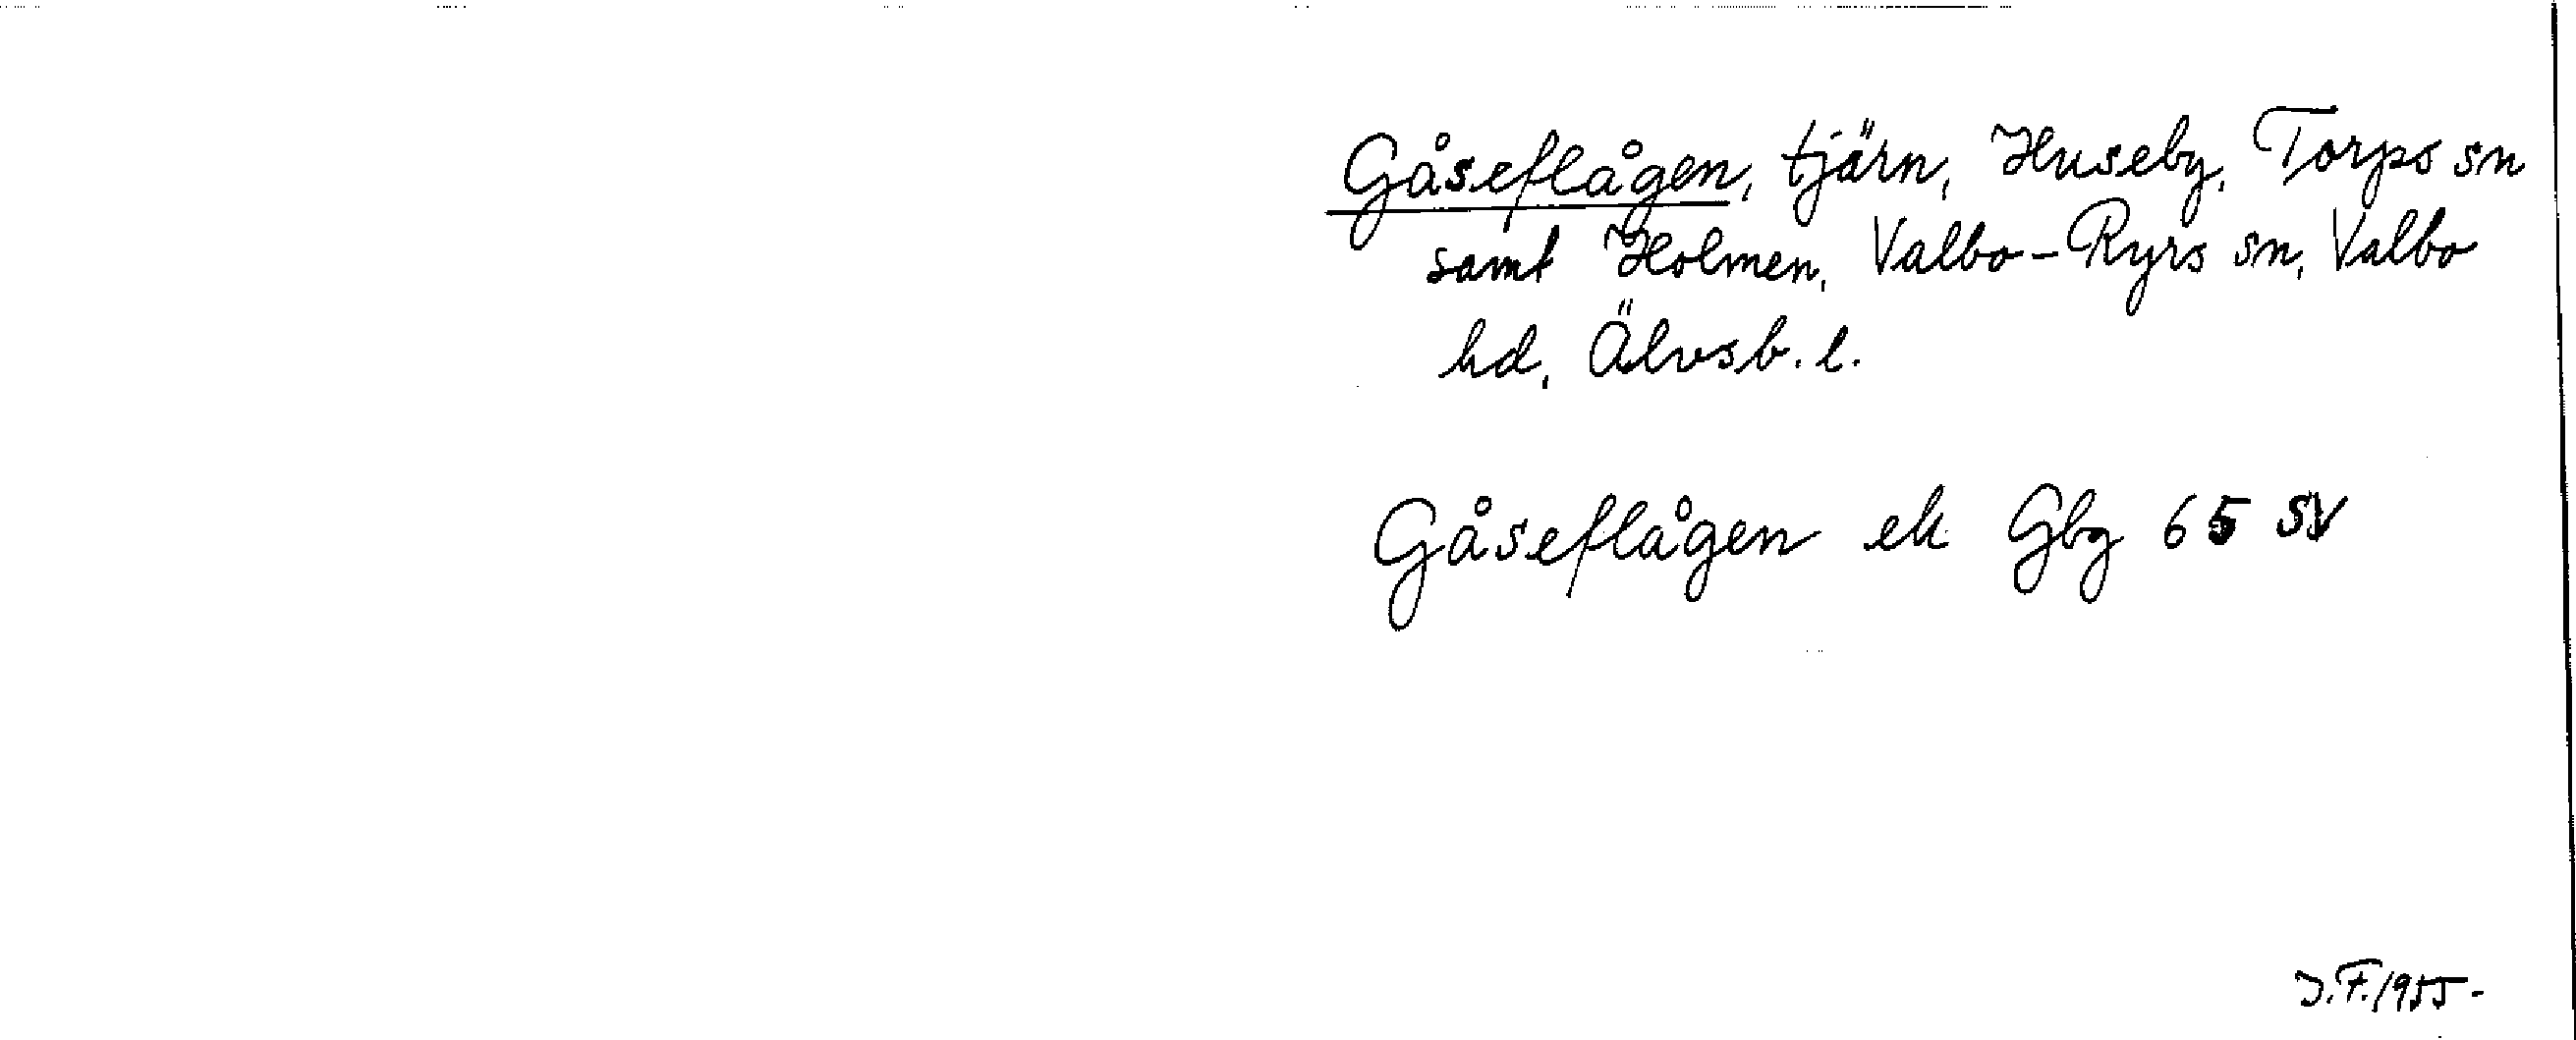 Gåseflågen, tjärn, Huseby, Torps sn
samt Holmen, Valbo-Ryrs sn, Valbo
hd, Älvsb. l.
Gåseflågen ek Gbg 65 SV
J.F. 1955-